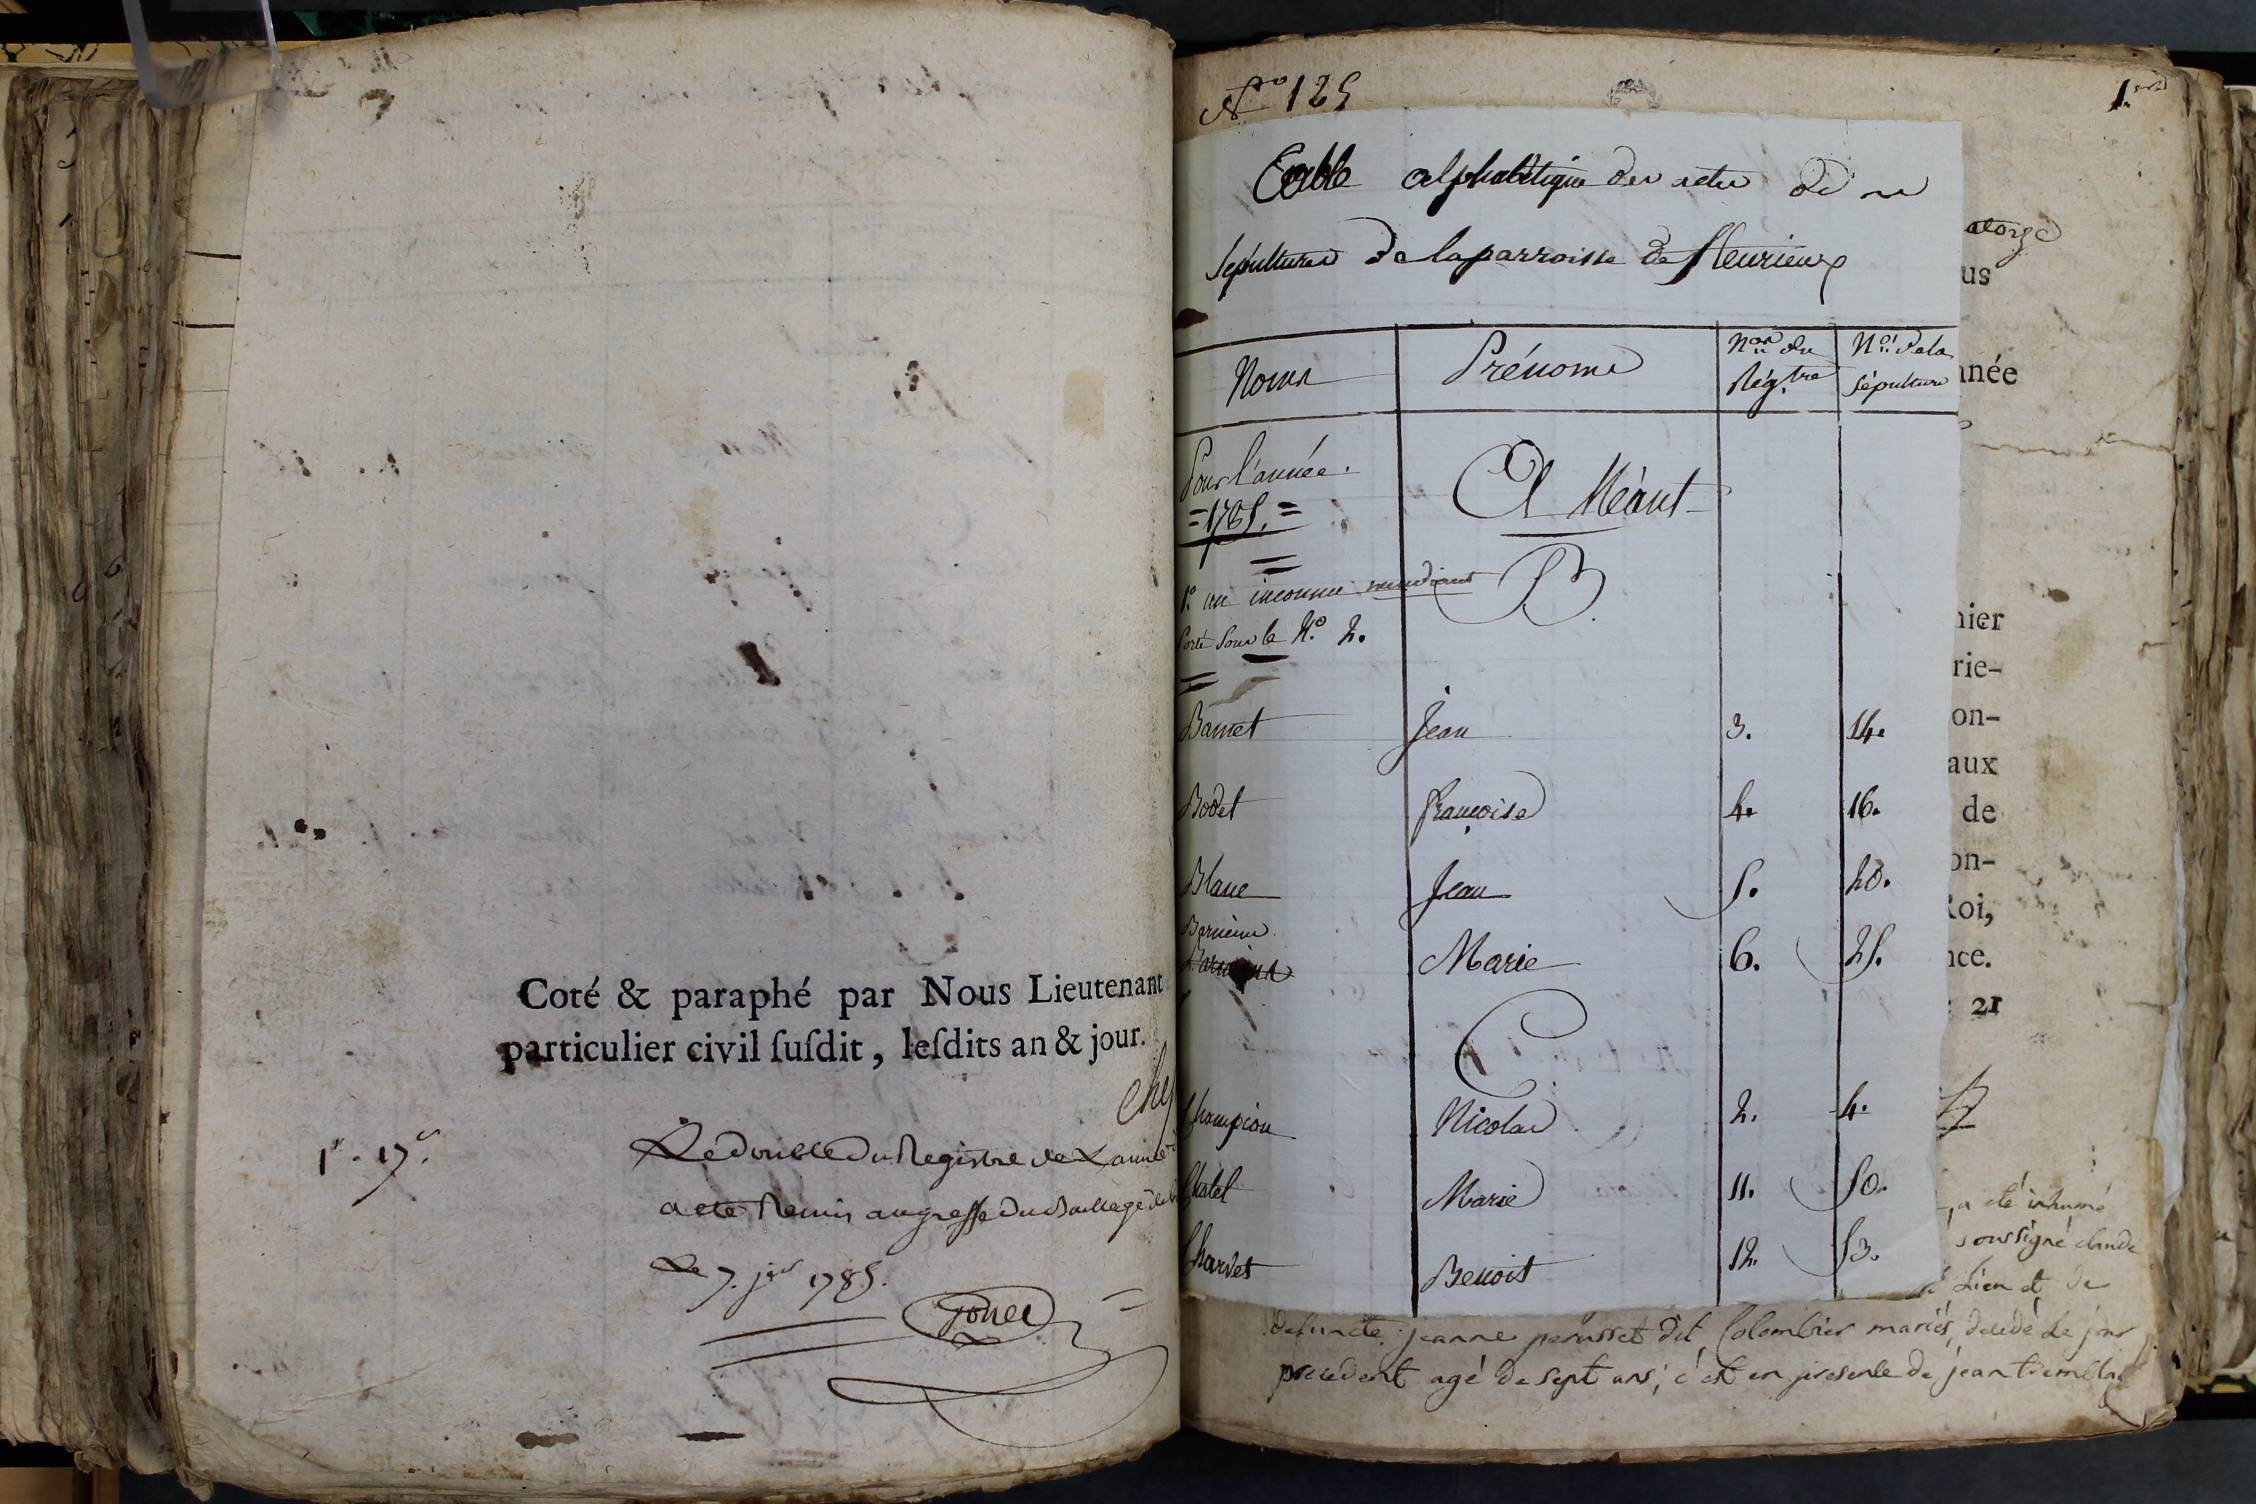 Coté & paraphé par Nous Lieutenant
particulier civil ſuſdit, leſdits an & jour.
chy
1r. 17e.
Le double du Registre de L'année
a été Remis au greffe du Bailliage de
Le 7. jer 1785.
No 125
1.er
Table alphabétique des actes de
Sépultures de la parroisse de fleurieux
Noms Prénoms Nos du Régtre Nos de la Sépulture
Pour l'année. A Néant
= 1785. =
1o. un inconnu mendiant B
Porté sous le No. 2.
Barret Jean 3. 14.
Bodet françoise 4. 16.
Blanc Jean 5. 20.
Marie 6. 25.
C
Champion Nicolas 2. 4.
Chatel Marie 11. 50.
Charvet Benoit 12. 53.
atorze
us
nnée
nier
rie-
on-
aux
de
on-
Roi,
nce.
21
a été inhumé
soussigné claude
Lieu et de
defuncte jeanne perusset dit Colombier mariés, décédé le jour
précédent agé de sept ans; c'est en présence de jean